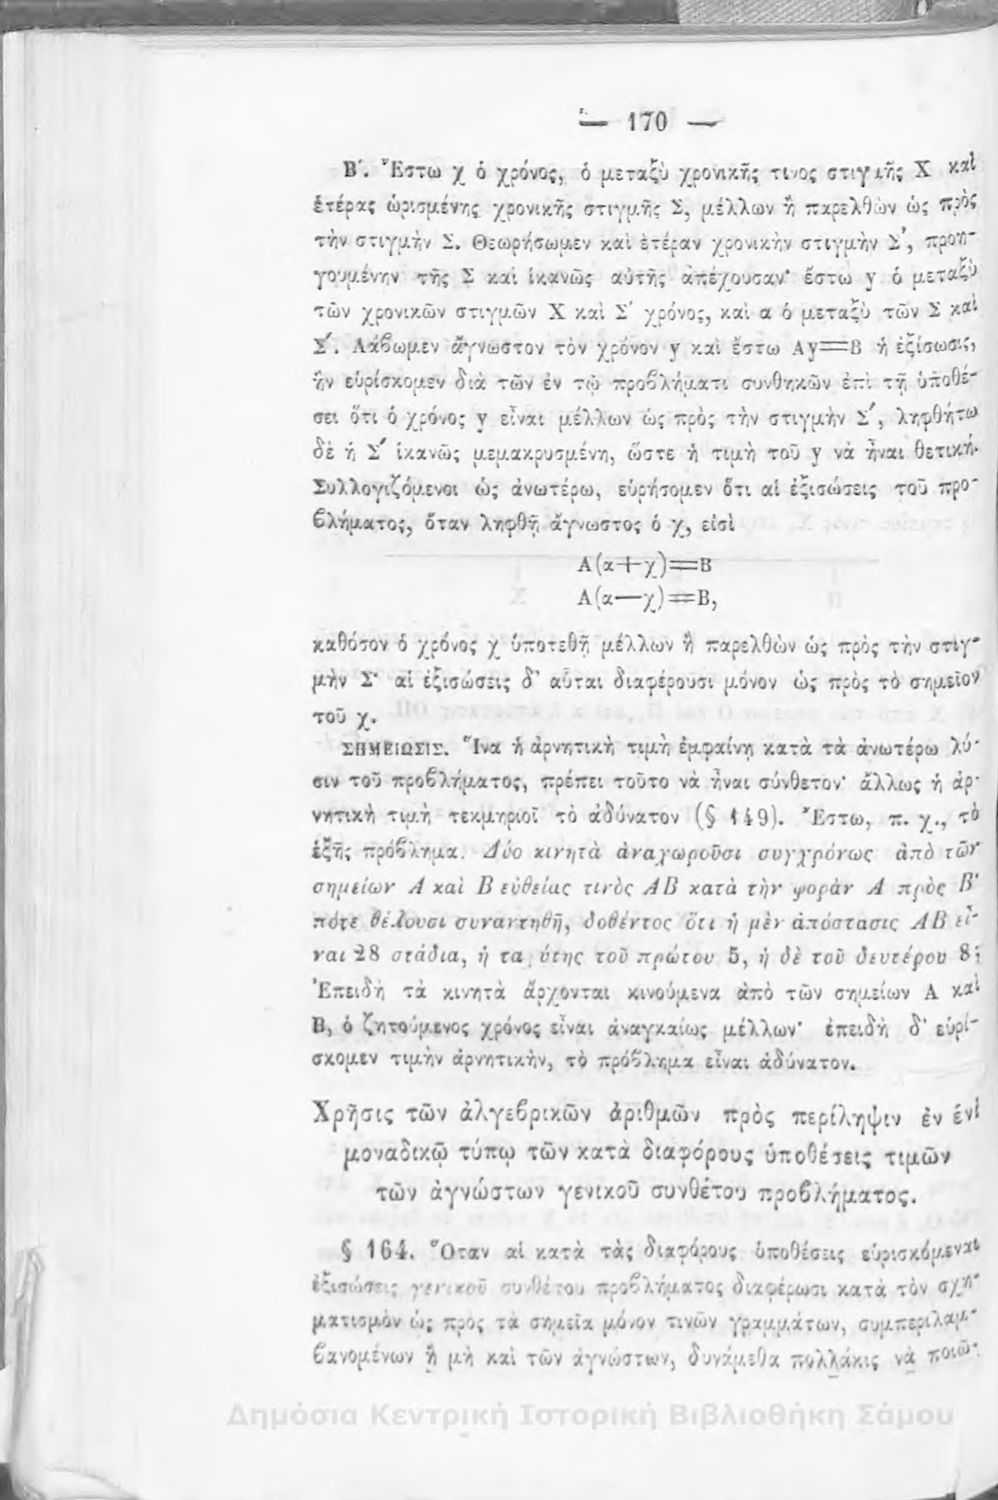 — 170 —
Β'. Ἔστω χ ὁ χρόνος, ὁ μεταξὺ χρονικῆς τινος στιγμῆς Χ καὶ
ἑτέρας ὡρισμένης χρονικῆς στιγμῆς Σ, μέλλων ἢ παρελθὼν ὡς πρὸς
τὴν στιγμὴν Σ. Θεωρήσωμεν καὶ ἑτέραν χρονικὴν στιγμὴν Σ', προη-
γουμένην τῆς Σ καὶ ἱκανῶς αὐτῆς ἀπέχουσαν· ἔστω y ὁ μεταξὺ
τῶν χρονικῶν στιγμῶν Χ καὶ Σ' χρόνος, καὶ α ὁ μεταξὺ τῶν Σ καὶ
Σ'. Λάβωμεν ἄγνωστον τὸν χρόνον y καὶ ἔστω Ay=B ἡ ἐξίσωσις,
ἣν εὑρίσκομεν διὰ τῶν ἐν τῷ προβλήματι συνθηκῶν ἐπὶ τῇ ὑποθέ-
σει ὅτι ὁ χρόνος y εἶναι μέλλων ὡς πρὸς τὴν στιγμὴν Σ', ληφθήτω
δὲ ἡ Σ' ἱκανῶς μεμακρυσμένη, ὥστε ἡ τιμὴ τοῦ y νὰ ἦναι θετική.
Συλλογιζόμενοι ὡς ἀνωτέρω, εὑρήσομεν ὅτι αἱ ἐξισώσεις τοῦ προ-
βλήματος, ὅταν ληφθῇ ἄγνωστος ὁ χ, εἰσὶ
Α(α+χ)=Β
Α(α—χ)=Β,
καθόσον ὁ χρόνος χ ὑποτεθῇ μέλλων ἢ παρελθὼν ὡς πρὸς τὴν στιγ-
μὴν Σ· αἱ ἐξισώσεις δ' αὗται διαφέρουσι μόνον ὡς πρὸς τὸ σημεῖον
τοῦ χ.
ΣΗΜΕΙΩΣΙΣ. Ἵνα ἡ ἀρνητικὴ τιμὴ ἐμφαίνῃ κατὰ τὰ ἀνωτέρω λύ-
σιν τοῦ προβλήματος, πρέπει τοῦτο νὰ ἦναι σύνθετον· ἄλλως ἡ ἀρ-
νητικὴ τιμὴ τεκμηριοῖ τὸ ἀδύνατον (§ 149). Ἔστω, π. χ., τὸ
ἑξῆς πρόβλημα. Δύο κινητὰ ἀναχωροῦσι συγχρόνως ἀπὸ τῶν
σημείων Α καὶ Β εὐθείας τινὸς ΑΒ κατὰ τὴν φορὰν Α πρὸς Β·
πότε θέλουσι συναντηθῆ, δοθέντος ὅτι ἡ μὲν ἀπόστασις ΑΒ εἶ-
ναι 28 στάδια, ἡ ταχύτης τοῦ πρώτου 5, ἡ δὲ τοῦ δευτέρου 8;
Ἐπειδὴ τὰ κινητὰ ἄρχονται κινούμενα ἀπὸ τῶν σημείων Α καὶ
Β, ὁ ζητούμενος χρόνος εἶναι ἀναγκαίως μέλλων· ἐπειδὴ δ' εὑρί-
σκομεν τιμὴν ἀρνητικὴν, τὸ πρόβλημα εἶναι ἀδύνατον.
Χρῆσις τῶν ἀλγεβρικῶν ἀριθμῶν πρὸς περίληψιν ἐν ἑνὶ
μοναδικῷ τύπῳ τῶν κατὰ διαφόρους ὑποθέσεις τιμῶν
τῶν ἀγνώστων γενικοῦ συνθέτου προβλήματος.
§ 164. Ὅταν αἱ κατὰ τὰς διαφόρους ὑποθέσεις εὑρισκόμεναι
ἐξισώσεις γενικοῦ συνθέτου προβλήματος διαφέρωσι κατὰ τὸν σχη-
ματισμὸν ὡς πρὸς τὰ σημεῖα μόνον τινῶν γραμμάτων, συμπεριλαμ-
βανομένων ἢ μὴ καὶ τῶν ἀγνώστων, δυνάμεθα πολλάκις νὰ ποιώ-
Δημόσια Κεντρική Ιστορική Βιβλιοθήκη Σάμου